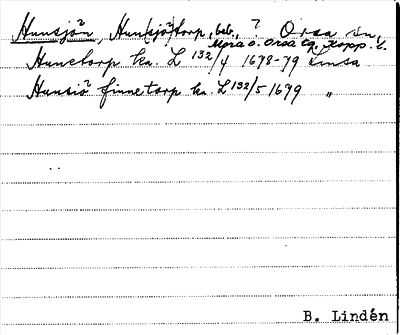 Hunsjön, Hunsjötorp, beb., ? Orsa sn,
Mora o. Orsa tg, Kopp. l.
Hunetorp ha. L 132/4 1678-79 Linsa
Hunsiö finnetorp ha. L 132/5 1699 "
B. Lindén